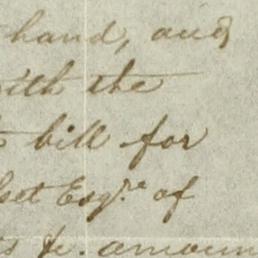 hand, and
with the
bill for
Esqr. of
&c. amoun